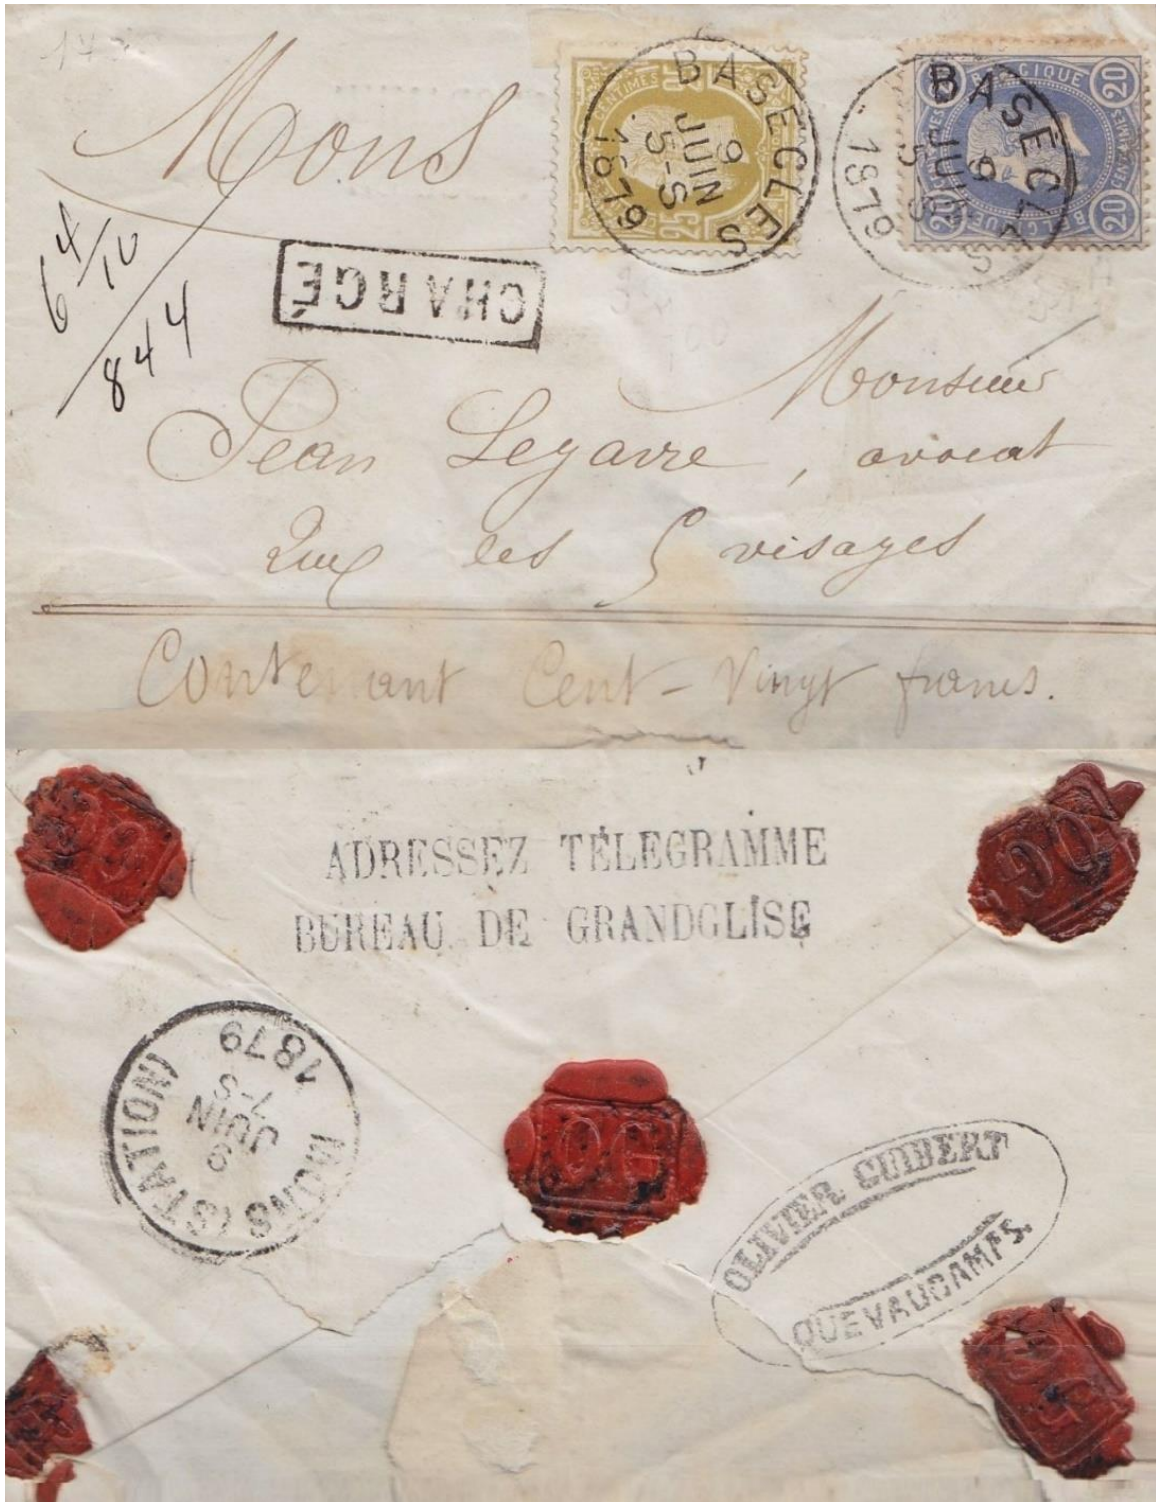 Mons
BASECLES
9
JUIN
5-S
1879
CENTIMES
25
BASECLES
9
JUIN
5-S
1879
BELGIQUE
20 20
20 20
64/10
844
CHARGÉ
Monsieur
Jean Legavre, avocat
Rue des 5 visages
Contenant Cent-Vingt francs.
ADRESSEZ TÉLEGRAMME
BUREAU DE GRANDGLISE
MONS (STATION)
9
JUIN
7-S
1879
OG
OG
OLIVIER GUIBERT
QUEVAUCAMPS.